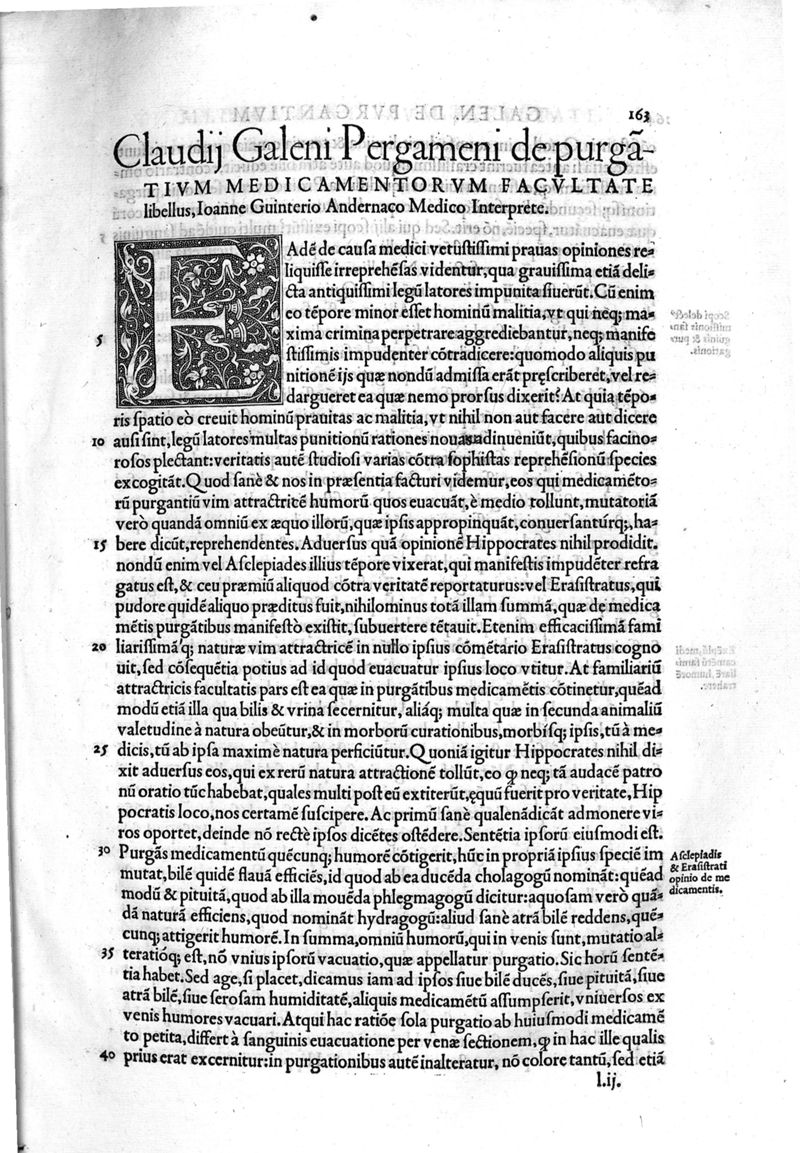 163
Claudij Galeni Pergameni de purgā-
TIVM MEDICAMENTORVM FACVLTATE
libellus, Ioanne Guinterio Andernaco Medico Interprete.
EAdē de causa medici vetustissimi prauas opiniones re-
liquisse irreprehēsas videntur, qua grauissima etiā deli-
cta antiquissimi legū latores impunita siuerūt. Cū enim
eo tēpore minor esset hominū malitia, vt qui neq; ma-
5 xima crimina perpetrare aggrediebantur, neq; manife
stissimis impudenter cōtradicere: quomodo aliquis pu
nitionē ijs quæ nondū admissa erāt pręscriberet, vel re-
dargueret ea quæ nemo prorsus dixerit? At quia tēpo-
ris spatio eò creuit hominū prauitas ac malitia, vt nihil non aut facere aut dicere
10 ausi sint, legū latores multas punitionū rationes nouas adinueniūt, quibus facino-
rosos plectant: veritatis autē studiosi varias cōtra sophistas reprehēsionū species
excogitāt. Quod sanè & nos in præsentia facturi videmur, eos qui medicamēto-
rū purgantiū vim attractricē humorū quos euacuāt, è medio tollunt, mutatoriā
verò quandā omniū ex æquo illorū, quæ ipsis appropinquāt, conuersantúrq;, ha-
15 bere dicūt, reprehendentes. Aduersus quā opinionē Hippocrates nihil prodidit.
nondū enim vel Asclepiades illius tēpore vixerat, qui manifestis impudēter refra
gatus est, & ceu præmiū aliquod cōtra veritatē reportaturus: vel Erasistratus, qui
pudore quidē aliquo præditus fuit, nihilominus totā illam summā, quæ de medica
mētis purgātibus manifestò existit, subuertere tētauit. Etenim efficacissimā fami
20 liarissimā'q; naturæ vim attractricē in nullo ipsius cōmētario Erasistratus cogno
uit, sed cōsequētia potius ad id quod euacuatur ipsius loco vtitur. At familiariū
attractricis facultatis pars est ea quæ in purgātibus medicamētis cōtinetur, quēad
modū etiā illa qua bilis & vrina secernitur, aliáq; multa quæ in secunda animaliū
valetudine à natura obeūtur, & in morborū curationibus, morbísq; ipsis, tū à me-
25 dicis, tū ab ipsa maximè natura perficiūtur. Quoniā igitur Hippocrates nihil di-
xit aduersus eos, qui ex rerū natura attractionē tollūt, eo ꝙ neq; tā audacē patro
nū oratio tūc habebat, quales multi post eū extiterūt, ęquū fuerit pro veritate, Hip
pocratis loco, nos certamē suscipere. Ac primū sanè qualenādicāt admonere vi-
ros oportet, deinde nō rectè ipsos dicētes ostēdere. Sentētia ipsorū eiusmodi est.
30 Purgās medicamentū quēcunq; humorē cōtigerit, hūc in propriā ipsius speciē im
mutat, bilē quidē flauā efficiēs, id quod ab ea ducēda cholagogū nomināt: quēad
modū & pituitā, quod ab illa mouēda phlegmagogū dicitur: aquosam verò quā-
dā naturā efficiens, quod nomināt hydragogū: aliud sanè atrā bilē reddens, quē-
cunq; attigerit humorē. In summa, omniū humorū, qui in venis sunt, mutatio al-
35 teratióq; est, nō vnius ipsorū vacuatio, quæ appellatur purgatio. Sic horū sentē-
tia habet. Sed age, si placet, dicamus iam ad ipsos siue bilē ducēs, siue pituitā, siue
atrā bilē, siue serosam humiditatē, aliquis medicamētū assumpserit, vniuersos ex
venis humores vacuari. Atqui hac ratiōe sola purgatio ab huiusmodi medicamē
to petita, differt à sanguinis euacuatione per venæ sectionem, ꝙ in hac ille qualis
40 prius erat excernitur: in purgationibus autē inalteratur, nō colore tantū, sed etiā
l.ij.
Asclepiadis
& Erasistrati
opinio de me
dicamentis.